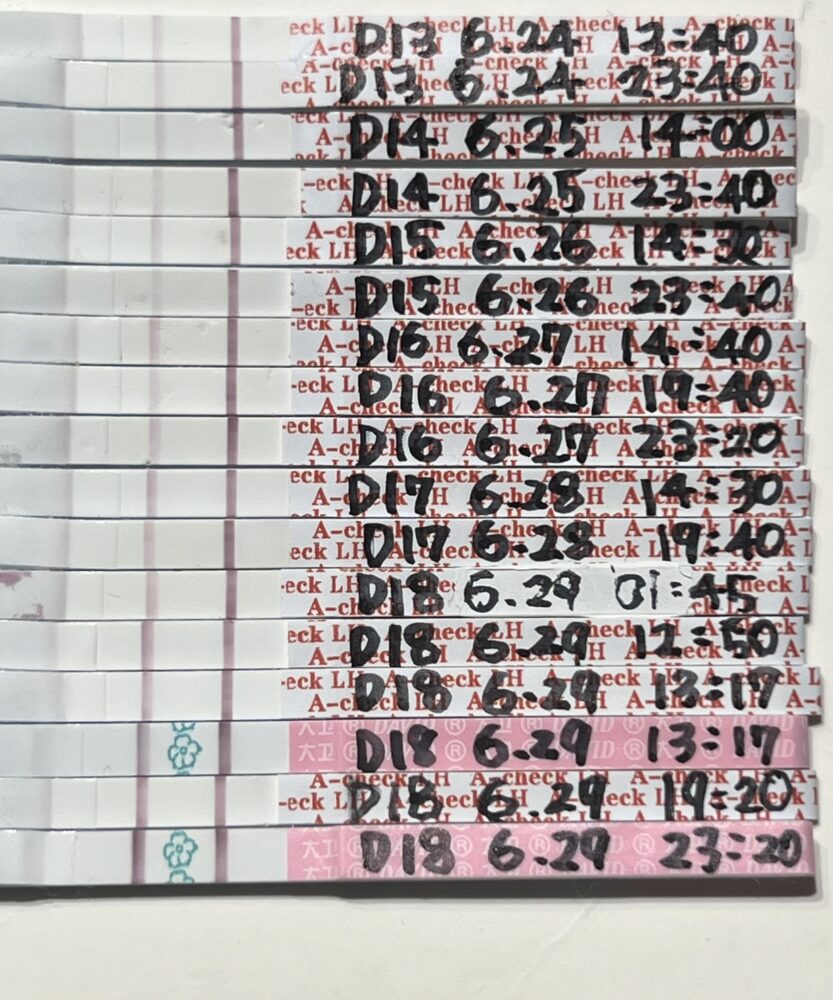 D13 6.24 13:40
D13 6.24 23:40
D14 6.25 14:00
D14 6.25 23:40
D15 6.26 14:30
D15 6.26 23:40
D16 6.27 14:40
D16 6.27 19:40
D16 6.27 23:20
D17 6.28 14:30
D17 6.28 19:40
D18 6.29 01:45
D18 6.29 12:50
D18 6.29 13:17
D18 6.29 13:17
D18 6.29 19:20
D18 6.29 23:20